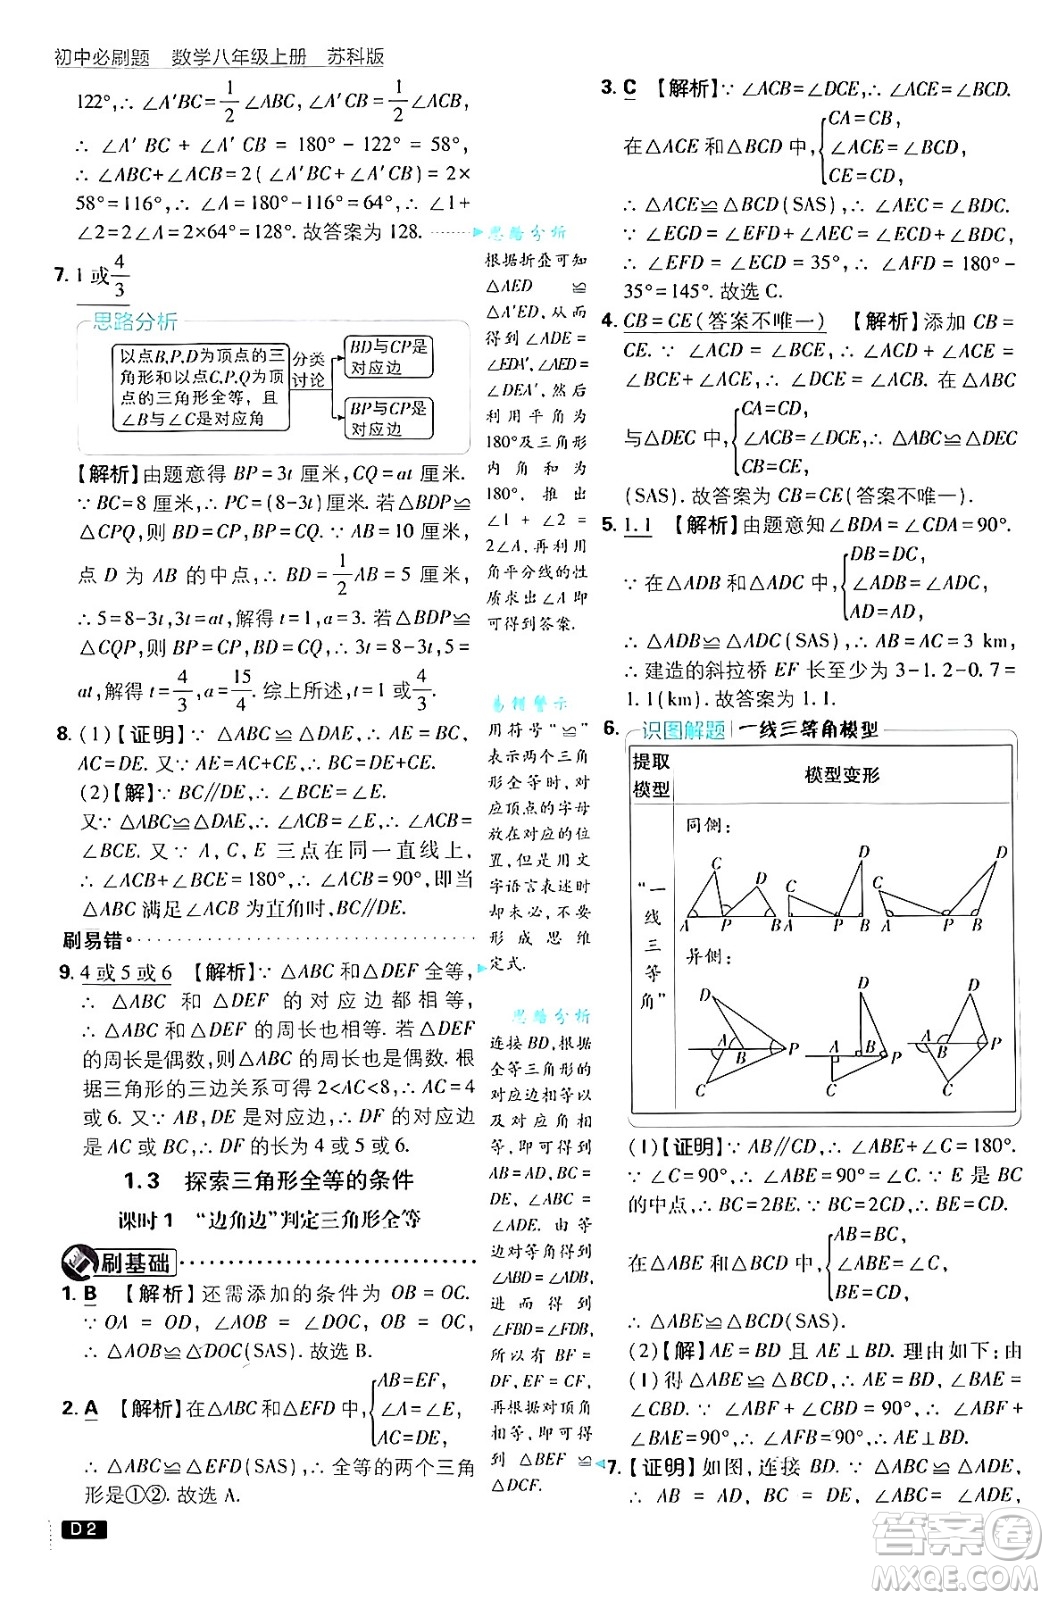 初中必刷题 数学八年级上册 苏科版
122°,∴ ∠A′BC=1/2∠ABC,∠A′CB=1/2∠ACB,
∴ ∠A′BC + ∠A′CB = 180° - 122° = 58°,
∴ ∠ABC+∠ACB=2(∠A′BC+∠A′CB)=2×
58°=116°,∴∠A=180°-116°=64°,∴∠1+
∠2=2∠A=2×64°=128°. 故答案为 128.
7. 1 或 4/3
思路分析
以点B,P,D为顶点的三
角形和以点C,P,Q为顶
点的三角形全等，且
∠B与∠C是对应角
分类
讨论
BD与CP是
对应边
BP与CP是
对应边
【解析】由题意得 BP=3t 厘米,CQ=at 厘米.
∵ BC=8 厘米,∴ PC=(8-3t)厘米. 若△BDP≌
△CPQ,则 BD=CP,BP=CQ. ∵ AB=10 厘米,
点 D 为 AB 的中点,∴ BD=1/2AB=5 厘米,
∴ 5=8-3t,3t=at,解得 t=1,a=3. 若△BDP≌
△CQP,则 BD=CQ,BP=CP,∴ 3t=8-3t,5=
at,解得 t=4/3,a=15/4. 综上所述,t=1 或4/3.
8. (1)【证明】∵ △ABC≌△DAE,∴ AE=BC,
AC=DE. 又∵ AE=AC+CE,∴ BC=DE+CE.
(2)【解】∵ BC//DE,∴ ∠BCE=∠E.
又∵ △ABC≌△DAE,∴ ∠ACB=∠E,∴∠ACB=
∠BCE. 又∵ A, C, E 三点在同一直线上,
∴∠ACB+∠BCE=180°,∴ ∠ACB=90°,即当
△ABC 满足∠ACB 为直角时,BC//DE.
刷易错
9. 4 或 5 或 6 【解析】∵ △ABC 和△DEF 全等,
∴ △ABC 和 △DEF 的对应边都相等,
∴ △ABC 和△DEF 的周长也相等. 若△DEF
的周长是偶数,则△ABC 的周长也是偶数. 根
据三角形的三边关系可得 2<AC<8,∴ AC=4
或6. 又∵ AB,DE 是对应边,∴ DF 的对应边
是 AC 或 BC,∴ DF 的长为 4 或 5 或 6.
1.3 探索三角形全等的条件
课时1 “边角边”判定三角形全等
刷基础
1. B 【解析】还需添加的条件为 OB = OC.
∵ OA = OD, ∠AOB = ∠DOC, OB = OC,
∴ △AOB≌△DOC(SAS). 故选 B.
2. A 【解析】在△ABC 和△EFD 中,
AB=EF,
∠A=∠E,
AC=DE,
∴ △ABC≌△EFD(SAS),∴ 全等的两个三角
形是①②. 故选 A.
D 2
思路分析
根据折叠可知
△AED ≌
△A′ED,从而
得到∠ADE=
∠EDA′,∠AED
=∠DEA′,然后
利用平角为
180°及三角形
内角和为
180°,推出
∠1 + ∠2 =
2∠A,再利用
角平分线的性
质求出∠A即
可得到答案.
易错警示
用符号“≌”
表示两个三角
形全等时,对
应顶点的字母
放在对应的位
置,但是用文
字语言表述时
却未必,不要
形成思维
定式.
思路分析
连接BD,根据
全等三角形的
对应边相等,
以及对应角相
等,即可得到
AB=AD,BC=
DE,∠ABC=
∠ADE.由等
边对等角得到
∠ABD=∠ADB,
进而得到
∠FBD=∠FDB,
所以BF=DF,
所以EF=CF,
再根据对顶角
相等,即可得
到 △BEF ≌
△DCF.
3. C 【解析】∵∠ACB=∠DCE,∴∠ACE=∠BCD.
在△ACE 和△BCD 中,
CA=CB,
∠ACE=∠BCD,
CE=CD,
∴ △ACE≌△BCD(SAS),∴ ∠AEC=∠BDC.
∵ ∠EGD=∠EFD+∠AEC=∠BDC+∠ECD,
∴ ∠EFD = ∠ECD = 35°, ∴ ∠AFD = 180°-
35°=145°. 故选 C.
4. CB=CE(答案不唯一) 【解析】添加 CB=
CE. ∵ ∠ACD = ∠BCE, ∴ ∠ACD + ∠ACE =
∠BCE+∠ACE,∴∠DCE=∠ACB. 在△ABC
与△DEC 中,
CA=CD,
∠ACB=∠DCE,
CB=CE,
∴ △ABC≌△DEC
(SAS). 故答案为 CB=CE(答案不唯一).
5. 1.1 【解析】由题意知∠BDA=∠CDA=90°.
∵ 在△ADB 和△ADC 中,
DB=DC,
∠ADB=∠ADC,
AD=AD,
∴ △ADB≌△ADC(SAS),∴ AB=AC=3 km,
∴ 建造的斜拉桥 EF 长至少为 3-1.2-0.7=
1.1(km). 故答案为 1.1.
6. 识图解题 一线三等角模型
提取
模型
模型变形
“一线三等角”
同侧:
C D A P B
C D A P B
C D A P B
异侧:
D A B P C
D A B P C
D A B P C
(1)【证明】∵ AB//CD,∴ ∠ABE+∠C=180°.
∵∠C=90°,∴∠ABE=90°=∠C. ∵ E 是 BC
的中点,∴ BC=2BE. ∵ BC=2CD,∴ BE=CD.
在△ABE 和△BCD 中,
AB=BC,
∠ABE=∠C,
BE=CD,
∴ △ABE≌△BCD(SAS).
(2)【解】AE=BD 且 AE⊥BD. 理由如下:由
(1)得△ABE≌△BCD,∴ AE=BD,∠BAE=
∠CBD. ∵ ∠ABF + ∠CBD = 90°, ∴ ∠ABF +
∠BAE=90°,∴ ∠AFB=90°,∴ AE⊥BD.
7. 【证明】如图,连接 BD. ∵ △ABC≌△ADE,
∴ AB = AD, BC = DE, ∠ABC = ∠ADE,
答案圈
MXQE.COM